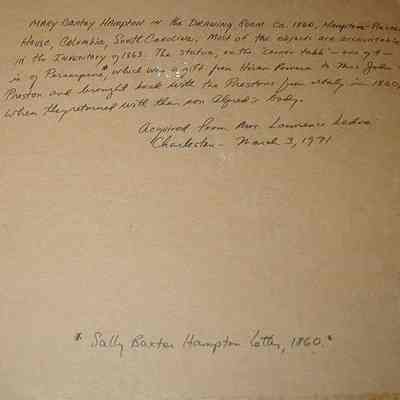 Mary Cantey Hampton in the Drawing Room Ca. 1860, Hampton-Preston
House, Columbia, South Carolina. Most of the objects are accountable
in the Inventory of 1863. The statue, on the center table - one of -
is of Proserpine*, which was a gift from Hiram Powers to Mrs John
Preston and brought back with the Prestons from Italy in 1860,
when they returned with their son Alfred's body.
Acquired from Mrs. Lawrence
Charleston - March 3, 1971
* Sally Baxter Hampton letter, 1860.*